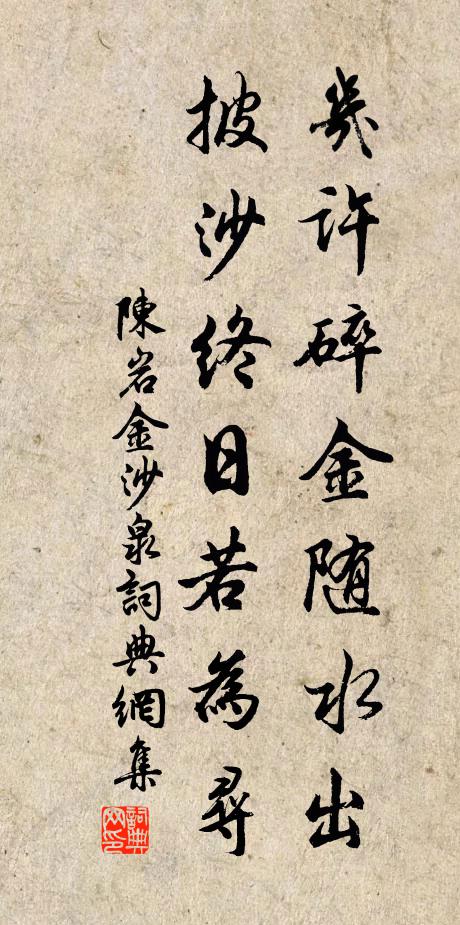 幾許碎金随水出
披沙終日若為尋
陳岩金沙泉詞典網集
詞典网印